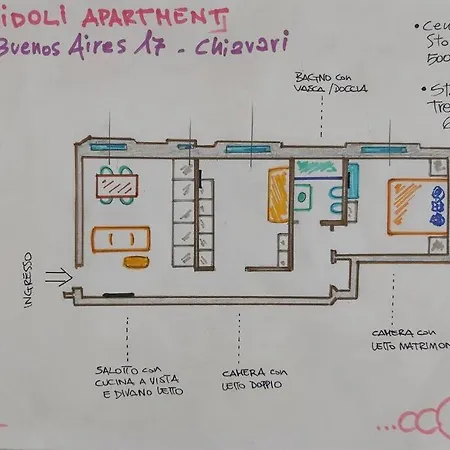 IDOLI APARTMENT
Buenos Aires 17 - Chiavari
• Cen
Sto
500
• St
Tre
BAGNO con
VASCA/DOCCIA
INGRESSO
SALOTTO con
CUCINA A VISTA
E DIVANO LETTO
CAMERA con
LETTO DOPPIO
CAMERA con
LETTO MATRIMON